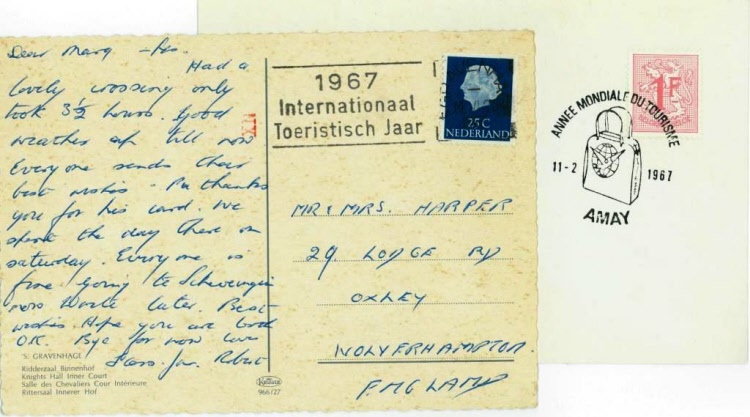 Dear Marg
Had a
lovely crossing only
took 3½ hours. Good
weather up till now
Everyone sends their
best wishes. Pa thanks
you for his card. We
spent the day there on
saturday. Everyone is
fine going to
now write later. Best
wishes. Hope you are both
OK. Bye for now love
Robert
'S: GRAVENHAGE
Ridderzaal Binnenhof
Knights Hall Inner Court
Salle des Chevaliers Cour Intérieure
Rittersaal Innerer Hof
966/27
1967
Internationaal
Toeristisch Jaar
25C
NEDERLAND
MR & MRS. HARPER
29. LODGE RD
OXLEY
WOLVERHAMPTON.
ENGLAND
1F
ANNEE MONDIALE DU TOURISME
11-2 1967
AMAY